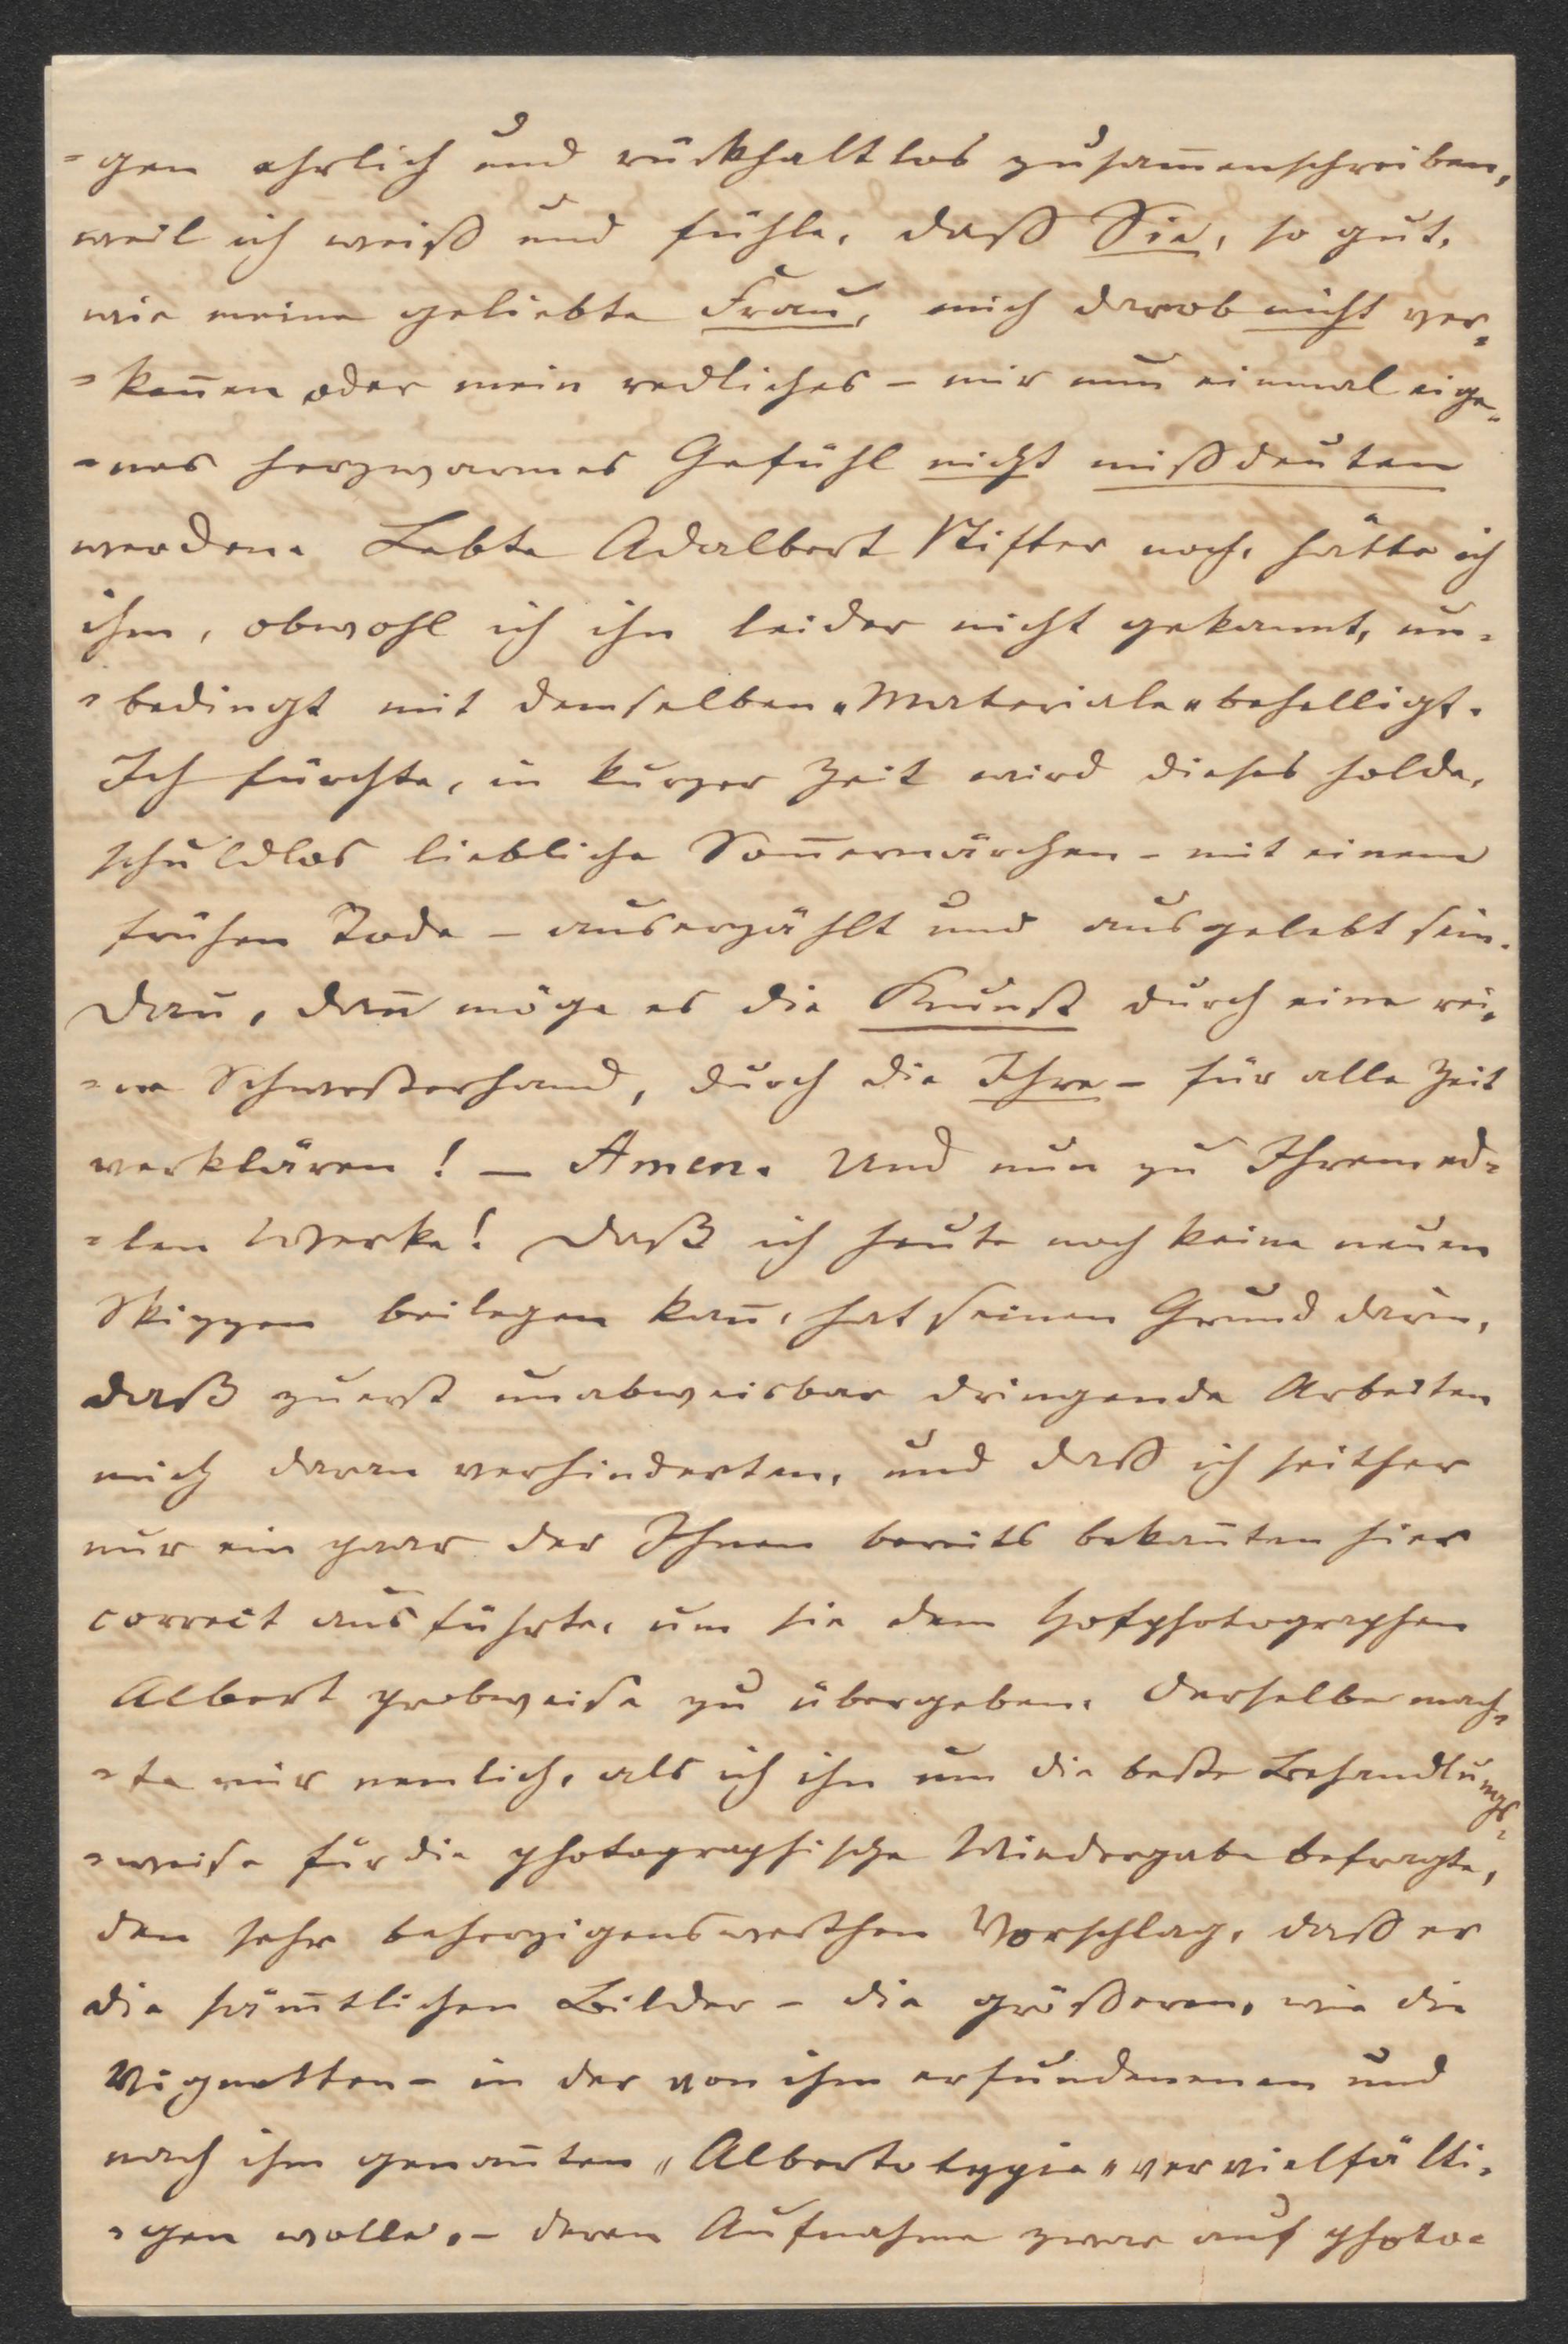 =gen ehrlich und rückhaltlos zusam̅enschreiben,
weil ich weiß und fühle, daß Sie, so gut,
wie meine geliebte Frau, mich darob nicht ver=
=ken̅en oder mein redliches – mir nun einmal eige=
=nes herzwarmes Gefühl nicht mißdeuten
werden. Lebte Adalbert Stifter noch, hätte ich
ihm, obwohl ich ihn leider nicht gekannt, un=
=bedingt mit demselben „Materiale" behelligt.
Ich fürchte, in kurzer Zeit wird dieses holde,
schuldlos liebliche Som̅ermärchen – mit einem
frühen Tode – auserzählt und ausgelebt sein.
Dan̅, dan̅ möge es die Kunst durch eine rei=
=ne Schwesterhand, durch die Ihre – für alle Zeit
verklären! – Amen. Und nun zu Ihrem ed=
=len Werke! Daß ich heute noch keine neuen
Skizzen beilegen kan̅, hat seinen Grund darin,
daß zuerst unabweisbar dringende Arbeiten
mich daran verhinderten, und daß ich seither
nur ein paar der Ihnen bereits bekan̅ten hier
correct ausführte, um sie dem Hofphotographen
Albert probweise zu übergeben. Derselbe mach=
=te mir nemlich, als ich ihn um die beste Behandlungs=
=weise für die photographische Wiedergabe befragte,
den sehr beherzigenswerthen Vorschlag, daß er
die säm̅tlichen Bilder – die größeren, wie die
Vignetten – in der von ihm erfundenenen und
nach ihm genan̅ten „Albertotypie" vervielfälti=
=gen wolle, – deren Aufnahme zwar auf photo=